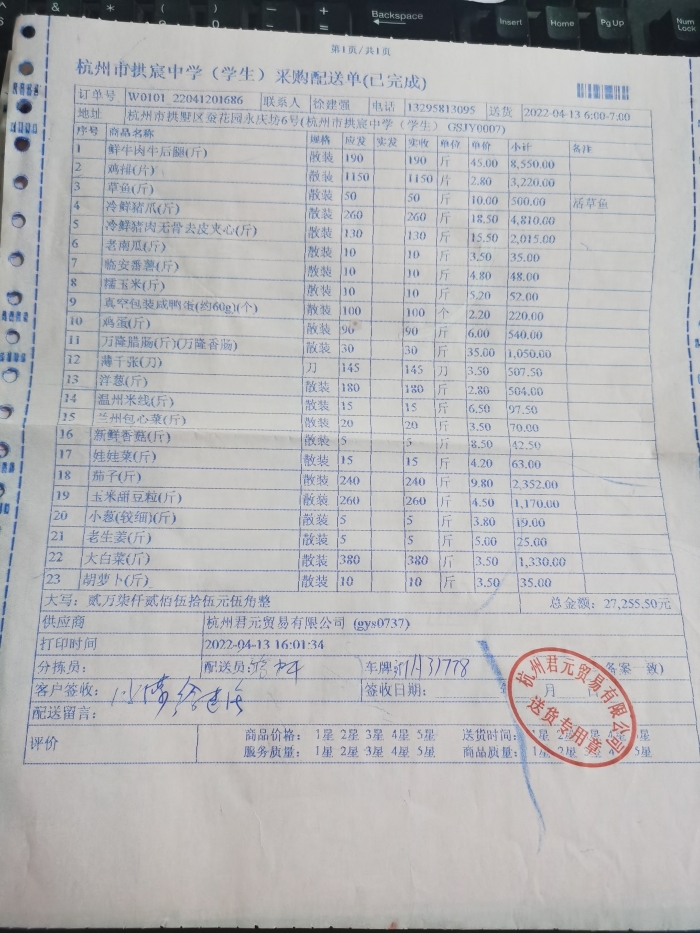 Backspace
Insert
Home
Pg Up
Num
Lock
第1页/共1页
杭州市拱宸中学（学生）采购配送单(已完成)
订单号 W0101_22041201686 联系人 徐建强 电话 13295813095 送货 2022-04-13 6:00-7:00
地址 杭州市拱墅区蚕花园永庆坊6号(杭州市拱宸中学（学生）(GSJY0007)
序号 商品名称 规格 应发 实发 实收 单价 单价 小计 备注
1 鲜牛肉牛后腿(斤) 散装 190 190 斤 45.00 8,550.00
2 鸡排(斤) 散装 1150 1150 斤 2.80 3,220.00
3 草鱼(斤) 散装 50 50 斤 10.00 500.00 活草鱼
4 冷鲜猪爪(斤) 散装 260 260 斤 18.50 4,810.00
5 冷鲜猪肉无骨去皮夹心(斤) 散装 130 130 斤 15.50 2,015.00
6 老南瓜(斤) 散装 10 10 斤 3.50 35.00
7 临安番薯(斤) 散装 10 10 斤 4.80 48.00
8 糯玉米(斤) 散装 10 10 斤 5.20 52.00
9 真空包装咸鸭蛋(约60g)(个) 散装 100 100 个 2.20 220.00
10 鸡蛋(斤) 散装 90 90 斤 6.00 540.00
11 万隆腊肠(斤)(万隆香肠) 散装 30 30 斤 35.00 1,050.00
12 薄千张(刀) 刀 145 145 刀 3.50 507.50
13 洋葱(斤) 散装 180 180 斤 2.80 504.00
14 温州米线(斤) 散装 15 15 斤 6.50 97.50
15 兰州包心菜(斤) 散装 20 20 斤 3.50 70.00
16 新鲜香菇(斤) 散装 5 5 斤 8.50 42.50
17 娃娃菜(斤) 散装 15 15 斤 4.20 63.00
18 茄子(斤) 散装 240 240 斤 9.80 2,352.00
19 玉米甜豆粒(斤) 散装 260 260 斤 4.50 1,170.00
20 小葱(较细)(斤) 散装 5 5 斤 3.80 19.00
21 老生姜(斤) 散装 5 5 斤 5.00 25.00
22 大白菜(斤) 散装 380 380 斤 3.50 1,330.00
23 胡萝卜(斤) 散装 10 10 斤 3.50 35.00
大写：贰万柒仟贰佰伍拾伍元伍角整 总金额：27,255.50元
供应商 杭州君元贸易有限公司 (gys0737)
打印时间 2022-04-13 16:01:34
分拣员： 配送员： 车牌 备案 致)
客户签收： 签收日期： 年 月
配送留言：
评价 商品价格： 1星 2星 3星 4星 5星 送货时间： 1星 2星 3星 4星 5星
服务质量： 1星 2星 3星 4星 5星 商品质量： 1星 2星 3星 4星 5星
杭州君元贸易有限公司
送货专用章